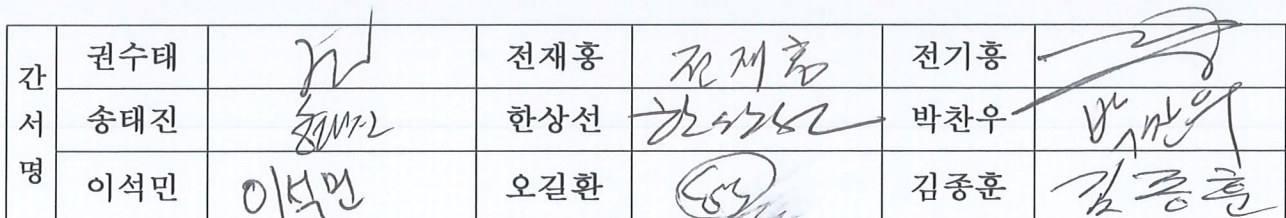 간서명
권수태 전재홍 전재홍 전기홍
송태진 송태진 한상선 한상선 박찬우
이석민 이석민 오길환 김종훈 김종훈